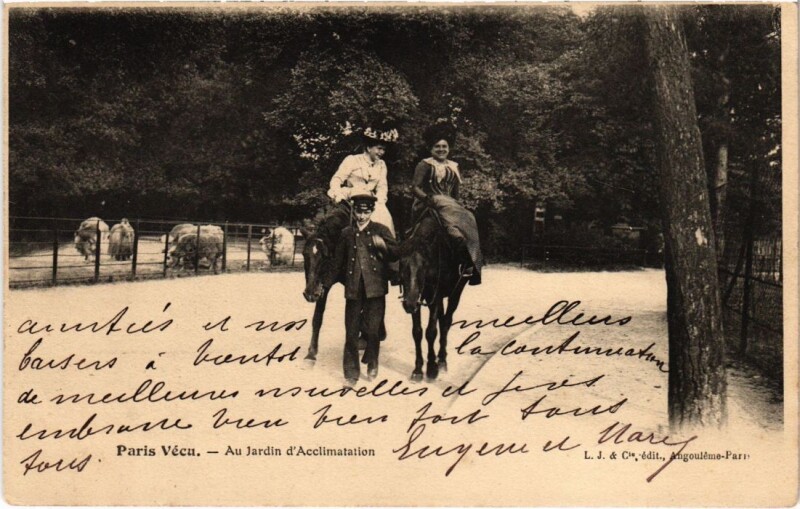 amitiés et nos meilleurs
baisers à bientot la continuation
de meilleures nouvelles et
embrasse bien bien fort tous
tous.
Eugene et Marie
Paris Vécu. — Au Jardin d'Acclimatation
L. J. & Cie, édit., Angoulême-Paris